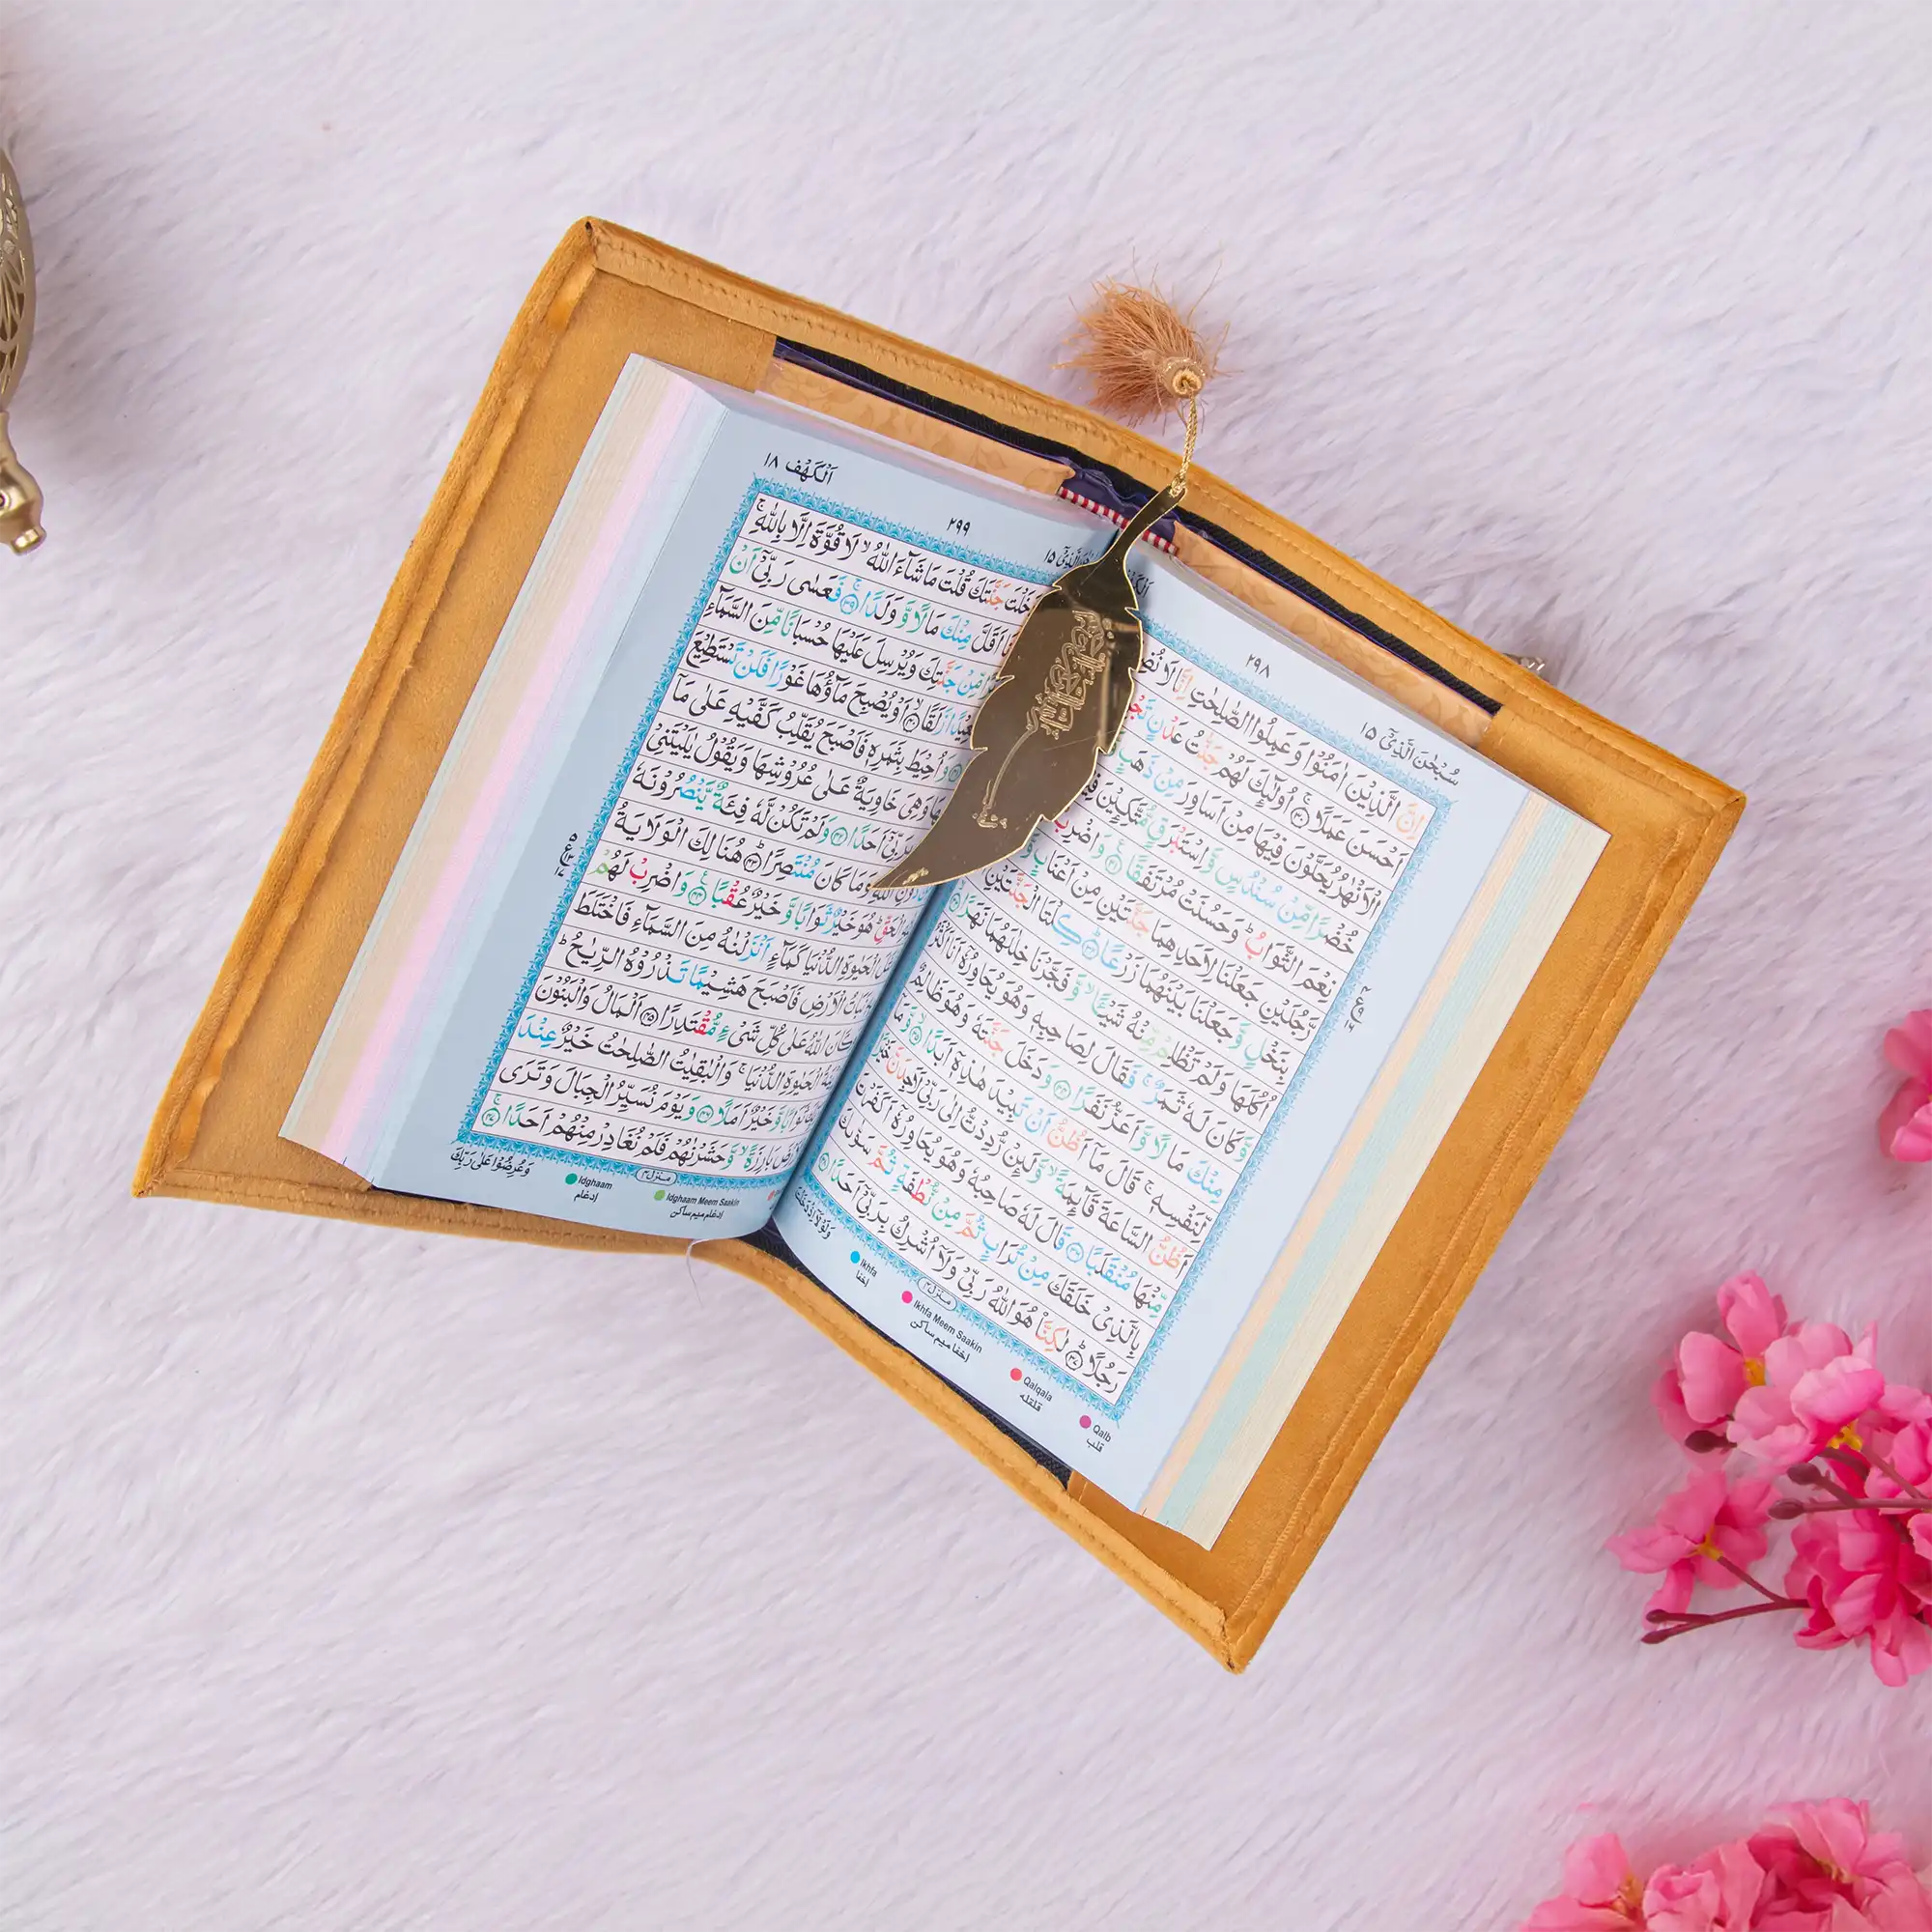 سُبْحٰنَ الَّذِیْۤ ١٥
٢٩٨
اِنَّ الَّذِیْنَ اٰمَنُوْا وَعَمِلُوا الصّٰلِحٰتِ اِنَّا لَا
اَحْسَنَ عَمَلًا ۚ ﴿٣٠﴾ اُولٰٓئِكَ لَهُمْ جَنّٰتُ عَدْنٍ
الْاَنْهٰرُ یُحَلَّوْنَ فِیْهَا مِنْ اَسَاوِرَ مِنْ ذَهَبٍ
خُضْرًا مِّنْ سُنْدُسٍ وَّاِسْتَبْرَقٍ مُّتَّكِـِٕیْنَ
نِعْمَ الثَّوَابُ ؕ وَحَسُنَتْ مُرْتَفَقًا ﴿٣١﴾ وَاضْرِبْ
رَّجُلَیْنِ جَعَلْنَا لِاَحَدِهِمَا جَنَّتَیْنِ مِنْ اَعْنَابٍ
بِنَخْلٍ وَّجَعَلْنَا بَیْنَهُمَا زَرْعًا ؕ ﴿٣٢﴾ كِلْتَا الْجَنَّتَیْنِ
اُكُلَهَا وَلَمْ تَظْلِمْ مِّنْهُ شَیْـًٔا ۙ وَّفَجَّرْنَا خِلٰلَهُمَا نَهَرًا ۙ ﴿٣٣﴾
وَّكَانَ لَهٗ ثَمَرٌ ۚ فَقَالَ لِصَاحِبِهٖ وَهُوَ یُحَاوِرُهٗۤ اَنَا اَكْثَرُ
مِنْكَ مَالًا وَّاَعَزُّ نَفَرًا ﴿٣٤﴾ وَدَخَلَ جَنَّتَهٗ وَهُوَ ظَالِمٌ
لِّنَفْسِهٖ ۚ قَالَ مَاۤ اَظُنُّ اَنْ تَبِیْدَ هٰذِهٖۤ اَبَدًا ۙ ﴿٣٥﴾ وَّمَاۤ
اَظُنُّ السَّاعَةَ قَآىِٕمَةً ۙ وَّلَىِٕنْ رُّدِدْتُّ اِلٰی رَبِّیْ لَاَجِدَنَّ خَیْرًا
مِّنْهَا مُنْقَلَبًا ۚ ﴿٣٦﴾ قَالَ لَهٗ صَاحِبُهٗ وَهُوَ یُحَاوِرُهٗۤ اَكَفَرْتَ
بِالَّذِیْ خَلَقَكَ مِنْ تُرَابٍ ثُمَّ مِنْ نُّطْفَةٍ ثُمَّ سَوّٰىكَ
رَجُلًا ؕ ﴿٣٧﴾ لٰكِنَّا هُوَ اللّٰهُ رَبِّیْ وَلَاۤ اُشْرِكُ بِرَبِّیْۤ اَحَدًا ﴿٣٨﴾
منزل ۴
Ikhfa
اخفا
Ikhfa Meem Saakin
اخفا میم ساکن
Qalqala
قلقله
Qalb
قلب
اَلْكَهْف ١٨
٢٩٩
جَنَّتَكَ قُلْتَ مَا شَآءَ اللّٰهُ ۙ لَا قُوَّةَ اِلَّا بِاللّٰهِ ۚ
اَقَلَّ مِنْكَ مَالًا وَّوَلَدًا ۚ ﴿٣٩﴾ فَعَسٰی رَبِّیْۤ اَنْ
مِّنْ جَنَّتِكَ وَیُرْسِلَ عَلَیْهَا حُسْبَانًا مِّنَ السَّمَآءِ
زَلَقًا ۙ ﴿٤٠﴾ اَوْ یُصْبِحَ مَآؤُهَا غَوْرًا فَلَنْ تَسْتَطِیْعَ
وَاُحِیْطَ بِثَمَرِهٖ فَاَصْبَحَ یُقَلِّبُ كَفَّیْهِ عَلٰی مَاۤ
وَهِیَ خَاوِیَةٌ عَلٰی عُرُوْشِهَا وَیَقُوْلُ یٰلَیْتَنِیْ
بِرَبِّیْۤ اَحَدًا ﴿٤٢﴾ وَلَمْ تَكُنْ لَّهٗ فِئَةٌ یَّنْصُرُوْنَهٗ
وَمَا كَانَ مُنْتَصِرًا ؕ ﴿٤٣﴾ هُنَالِكَ الْوَلَایَةُ
الْحَقِّ ؕ هُوَ خَیْرٌ ثَوَابًا وَّخَیْرٌ عُقْبًا ﴿٤٤﴾ وَاضْرِبْ لَهُمْ
الْحَیٰوةِ الدُّنْیَا كَمَآءٍ اَنْزَلْنٰهُ مِنَ السَّمَآءِ فَاخْتَلَطَ
نَبَاتُ الْاَرْضِ فَاَصْبَحَ هَشِیْمًا تَذْرُوْهُ الرِّیٰحُ ؕ
كَانَ اللّٰهُ عَلٰی كُلِّ شَیْءٍ مُّقْتَدِرًا ﴿٤٥﴾ اَلْمَالُ وَالْبَنُوْنَ
الْحَیٰوةِ الدُّنْیَا ۚ وَالْبٰقِیٰتُ الصّٰلِحٰتُ خَیْرٌ عِنْدَ
ثَوَابًا وَّخَیْرٌ اَمَلًا ﴿٤٦﴾ وَیَوْمَ نُسَیِّرُ الْجِبَالَ وَتَرَی
بَارِزَةً ۙ وَّحَشَرْنٰهُمْ فَلَمْ نُغَادِرْ مِنْهُمْ اَحَدًا ۚ ﴿٤٧﴾
منزل ۴
وَعُرِضُوْا عَلٰی رَبِّكَ
Idghaam
ادغام
Idghaam Meem Saakin
ادغام میم ساکن